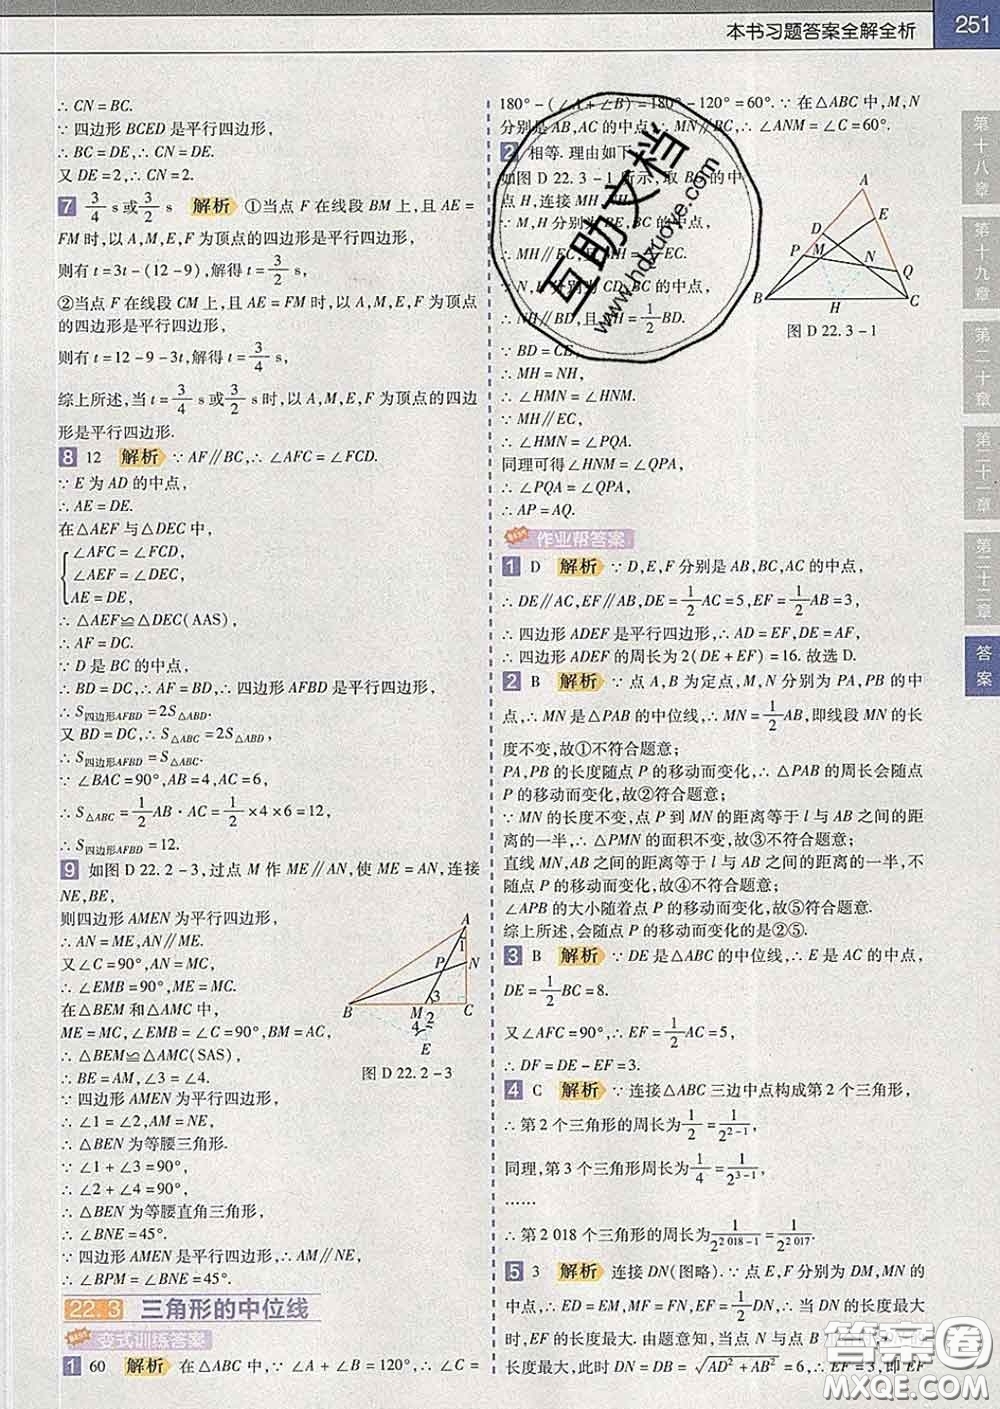 本书习题答案全解全析 251
∴ CN = BC.
∵ 四边形 BCED 是平行四边形,
∴ BC = DE, ∴ CN = DE.
又 DE = 2, ∴ CN = 2.
7 3/4 s 或 3/2 s 解析 ①当点 F 在线段 BM 上, 且 AE =
FM 时, 以 A, M, E, F 为顶点的四边形是平行四边形,
则有 t = 3t - (12 - 9), 解得 t = 3/2 s,
②当点 F 在线段 CM 上, 且 AE = FM 时, 以 A, M, E, F 为顶点
的四边形是平行四边形,
则有 t = 12 - 9 - 3t, 解得 t = 3/4 s,
综上所述, 当 t = 3/4 s 或 3/2 s 时, 以 A, M, E, F 为顶点的四边
形是平行四边形.
8 12 解析 ∵ AF∥BC, ∴ ∠AFC = ∠FCD.
∵ E 为 AD 的中点,
∴ AE = DE.
在△AEF 与△DEC 中,
∠AFC = ∠FCD,
∠AEF = ∠DEC,
AE = DE,
∴ △AEF≌△DEC(AAS),
∴ AF = DC.
∵ D 是 BC 的中点,
∴ BD = DC, ∴ AF = BD, ∴ 四边形 AFBD 是平行四边形,
∴ S四边形AFBD = 2S△ABD.
又 BD = DC, ∴ S△ABC = 2S△ABD,
∴ S四边形AFBD = S△ABC.
∵ ∠BAC = 90°, AB = 4, AC = 6,
∴ S△ABC = 1/2 AB · AC = 1/2 × 4 × 6 = 12,
∴ S四边形AFBD = 12.
9 如图 D 22. 2 - 3, 过点 M 作 ME∥AN, 使 ME = AN, 连接
NE, BE,
则四边形 AMEN 为平行四边形,
∴ AN = ME, AN∥ME.
又∠C = 90°, AN = MC,
∴ ∠EMB = 90°, ME = MC.
在△BEM 和△AMC 中,
ME = MC, ∠EMB = ∠C = 90°, BM = AC,
∴ △BEM≌△AMC(SAS),
∴ BE = AM, ∠3 = ∠4.
∵ 四边形 AMEN 为平行四边形,
∴ ∠1 = ∠2, AM = NE,
∴ △BEN 为等腰三角形.
∵ ∠1 + ∠3 = 90°,
∴ ∠2 + ∠4 = 90°,
∴ △BEN 为等腰直角三角形,
∴ ∠BNE = 45°.
∵ 四边形 AMEN 是平行四边形, ∴ AM∥NE,
∴ ∠BPM = ∠BNE = 45°.
A
1
P
N
3
B
M
2
C
4
E
图 D 22. 2 - 3
22. 3 三角形的中位线
变式训练答案
1 60 解析 在△ABC 中, ∵ ∠A + ∠B = 120°, ∴ ∠C =
180° - (∠A + ∠B) = 180° - 120° = 60°. ∵ 在△ABC 中, M, N
分别是 AB, AC 的中点, ∴ MN∥BC, ∴ ∠ANM = ∠C = 60°.
2 相等. 理由如下
如图 D 22. 3 - 1 所示, 取 BC 的中
点 H, 连接 MH, NH.
∵ M, H 分别为 BE, BC 的中点,
∴ MH∥EC, EC.
∵ N, H 分别为 CD, BC 的中点,
∴ NH∥BD, 且 NH = 1/2 BD.
∵ BD = CE,
∴ MH = NH,
∴ ∠HMN = ∠HNM.
∵ MH∥EC,
∴ ∠HMN = ∠PQA.
同理可得∠HNM = ∠QPA,
∴ ∠PQA = ∠QPA,
∴ AP = AQ.
A
E
D
P M N Q
B H C
图 D 22. 3 - 1
作业帮答案
1 D 解析 ∵ D, E, F 分别是 AB, BC, AC 的中点,
∴ DE∥AC, EF∥AB, DE = 1/2 AC = 5, EF = 1/2 AB = 3,
∴ 四边形 ADEF 是平行四边形, ∴ AD = EF, DE = AF,
∴ 四边形 ADEF 的周长为 2(DE + EF) = 16. 故选 D.
2 B 解析 ∵ 点 A, B 为定点, M, N 分别为 PA, PB 的中
点, ∴ MN 是△PAB 的中位线, ∴ MN = 1/2 AB, 即线段 MN 的长
度不变, 故①不符合题意;
PA, PB 的长度随点 P 的移动而变化, ∴ △PAB 的周长会随点
P 的移动而变化, 故②符合题意;
∵ MN 的长度不变, 点 P 到 MN 的距离等于 l 与 AB 之间的距
离的一半, ∴ △PMN 的面积不变, 故③不符合题意;
直线 MN, AB 之间的距离等于 l 与 AB 之间的距离的一半, 不
随点 P 的移动而变化, 故④不符合题意;
∠APB 的大小随着点 P 的移动而变化, 故⑤符合题意.
综上所述, 会随点 P 的移动而变化的是②⑤.
3 B 解析 ∵ DE 是△ABC 的中位线, ∴ E 是 AC 的中点,
DE = 1/2 BC = 8.
又∠AFC = 90°, ∴ EF = 1/2 AC = 5,
∴ DF = DE - EF = 3.
4 C 解析 ∵ 连接△ABC 三边中点构成第 2 个三角形,
∴ 第 2 个三角形的周长为 1/2 = 1/2^(2-1),
同理, 第 3 个三角形周长为 1/4 = 1/2^(3-1),
……
∴ 第 2 018 个三角形的周长为 1/2^(2 018-1) = 1/2^(2 017).
5 3 解析 连接 DN(图略). ∵ 点 E, F 分别为 DM, MN 的
中点, ∴ ED = EM, MF = FN, EF = 1/2 DN, ∴ 当 DN 的长度最大
时, EF 的长度最大. 由题意知, 当点 N 与点 B 重合时, DN 的
长度最大, 此时 DN = DB = √(AD² + AB²) = 6, ∴ EF = 3, 即 EF
第十八章
第十九章
第二十章
第二十一章
第二十二章
答案
互助文档
www.hdzuoye.com
答案卷
MXQE.COM